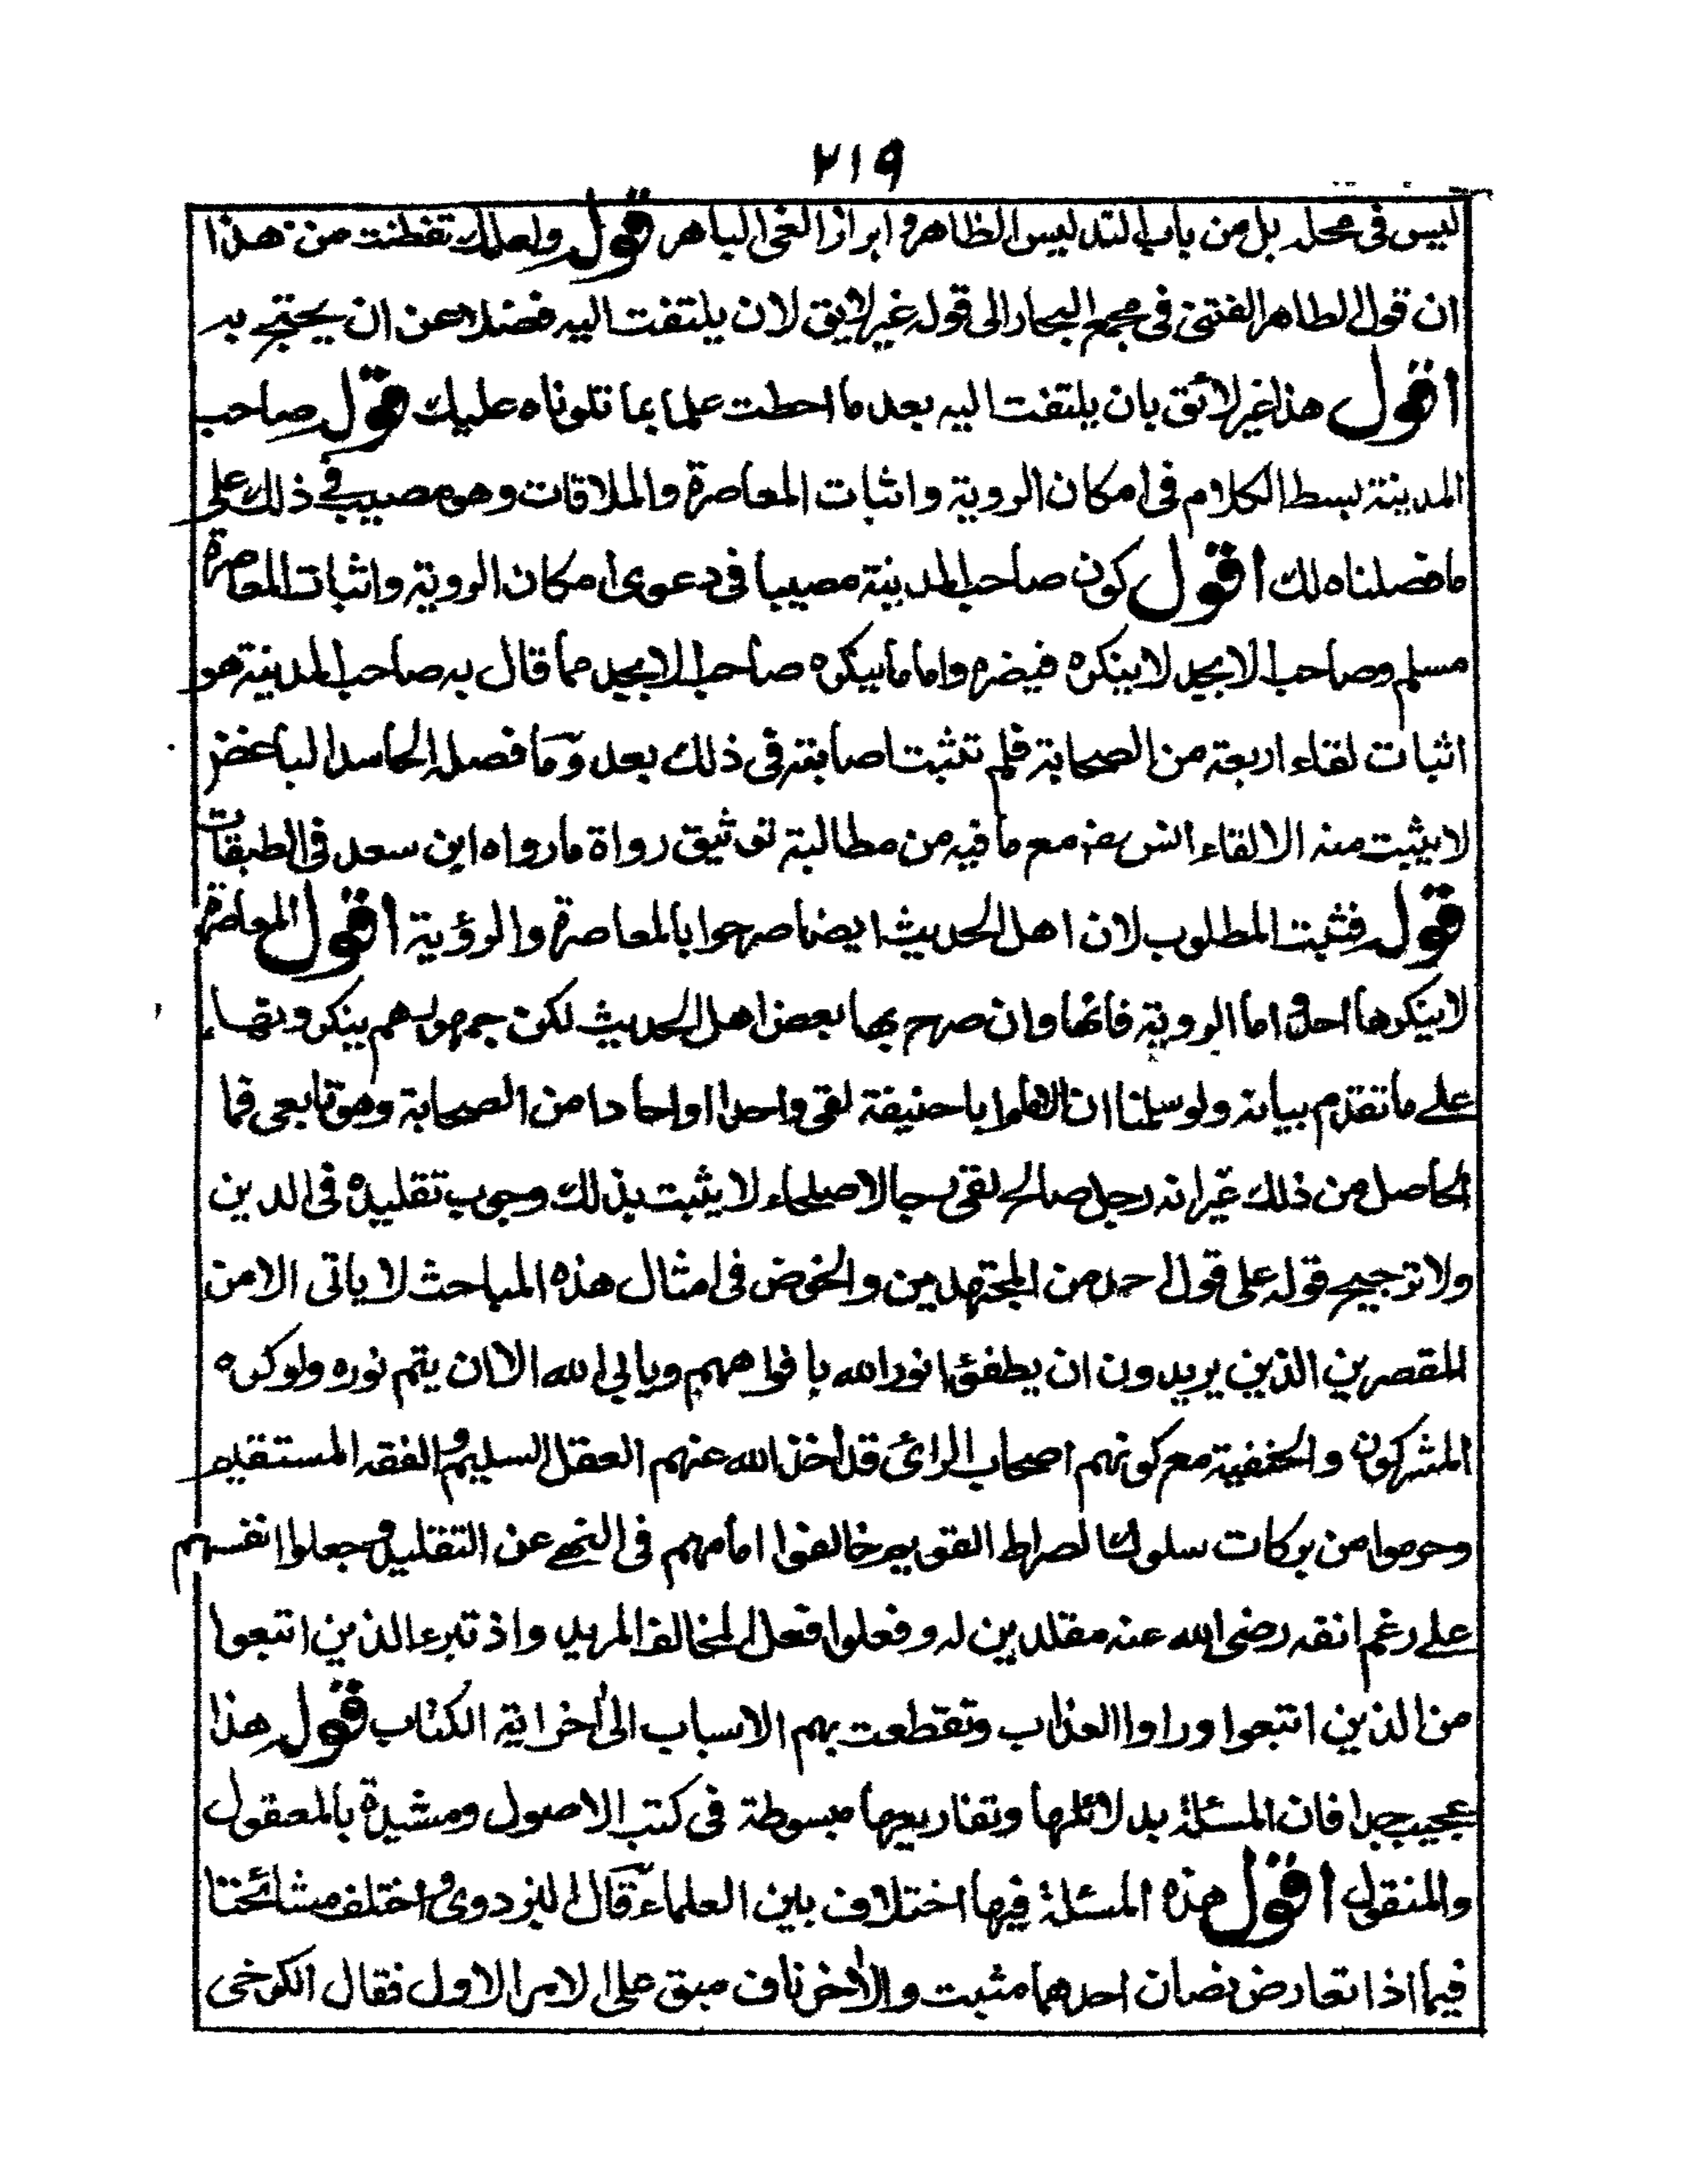 ٢١٩
ليس فى محله بل من باب التدليس الظاهر وابراز الغى الباهر قوله ولعلك تفطنت من هذا
ان قول الطاهر الفتنى فى مجمع البحار الى قوله غير لايق لان يلتفت اليه فضلا عن ان يحتج به
اقول هذا غير لائق بان يلتفت اليه بعد ما احطت علما بما تلوناه عليك قوله صاحب
المدينة بسط الكلام فى امكان الروية واثبات المعاصرة والملاقات وهو مصيب فى ذلك على
ما فصلناه لك اقول كون صاحب المدينة مصيبا فى دعوى امكان الروية واثبات المعاصرة
مسلم وصاحب الابجد لا ينكره فيضره واما ما ينكره صاحب الابجد مما قال به صاحب المدينة هو
اثبات لقاء اربعة من الصحابة فلم تثبت اصابته فى ذلك بعد وما فصله الحاسد الباغض
لا يثبت منه الا لقاء انس رضه مع ما فيه من مطالبة توثيق رواة ما رواه ابن سعد فى الطبقات
قوله فثبت المطلوب لان اهل الحديث ايضا صرحوا بالمعاصرة والرؤية اقول المعاصرة
لا ينكرها احد واما الروية فانها وان صرح بها بعض اهل الحديث لكن جمهورهم ينكرونها
على ما تقدم بيانه ولو سلمنا ان الامام ابا حنيفة لقى واحدا او احادا من الصحابة وهو تابعى فما
الحاصل من ذلك غير انه رجل صالح لقى رجالا صلحاء لا يثبت بذلك وجوب تقليده فى الدين
ولا ترجيح قوله على قول احد من المجتهدين والخوض فى امثال هذه المباحث لا ياتى الا من
المقصرين الذين يريدون ان يطفئوا نور الله بافواههم ويابى الله الا ان يتم نوره ولو كره
المشركون والحنفية مع كونهم اصحاب الرائ قد اخذ الله عنهم العقل السليم والفقه المستقيم
وحرموا من بركات سلوك الصراط القويم خالفوا امامهم فى النهى عن التقليد وجعلوا انفسهم
على رغم انفه رضى الله عنه مقلدين له وفعلوا فعل المخالف المريد واذ تبرء الذين اتبعوا
من الذين اتبعوا وراوا العذاب وتقطعت بهم الاسباب الى اخر اية الكتاب قوله هذا
عجيب جدا فان المسئلة بدلائلها وتفاريعها مبسوطة فى كتب الاصول ومشيدة بالمعقول
والمنقول اقول هذه المسئلة فيها اختلاف بين العلماء قال البزدوى واختلف مشائخنا
فيما اذا تعارض نصان احدهما مثبت والاخر ناف مبق على الامر الاول فقال الكرخى